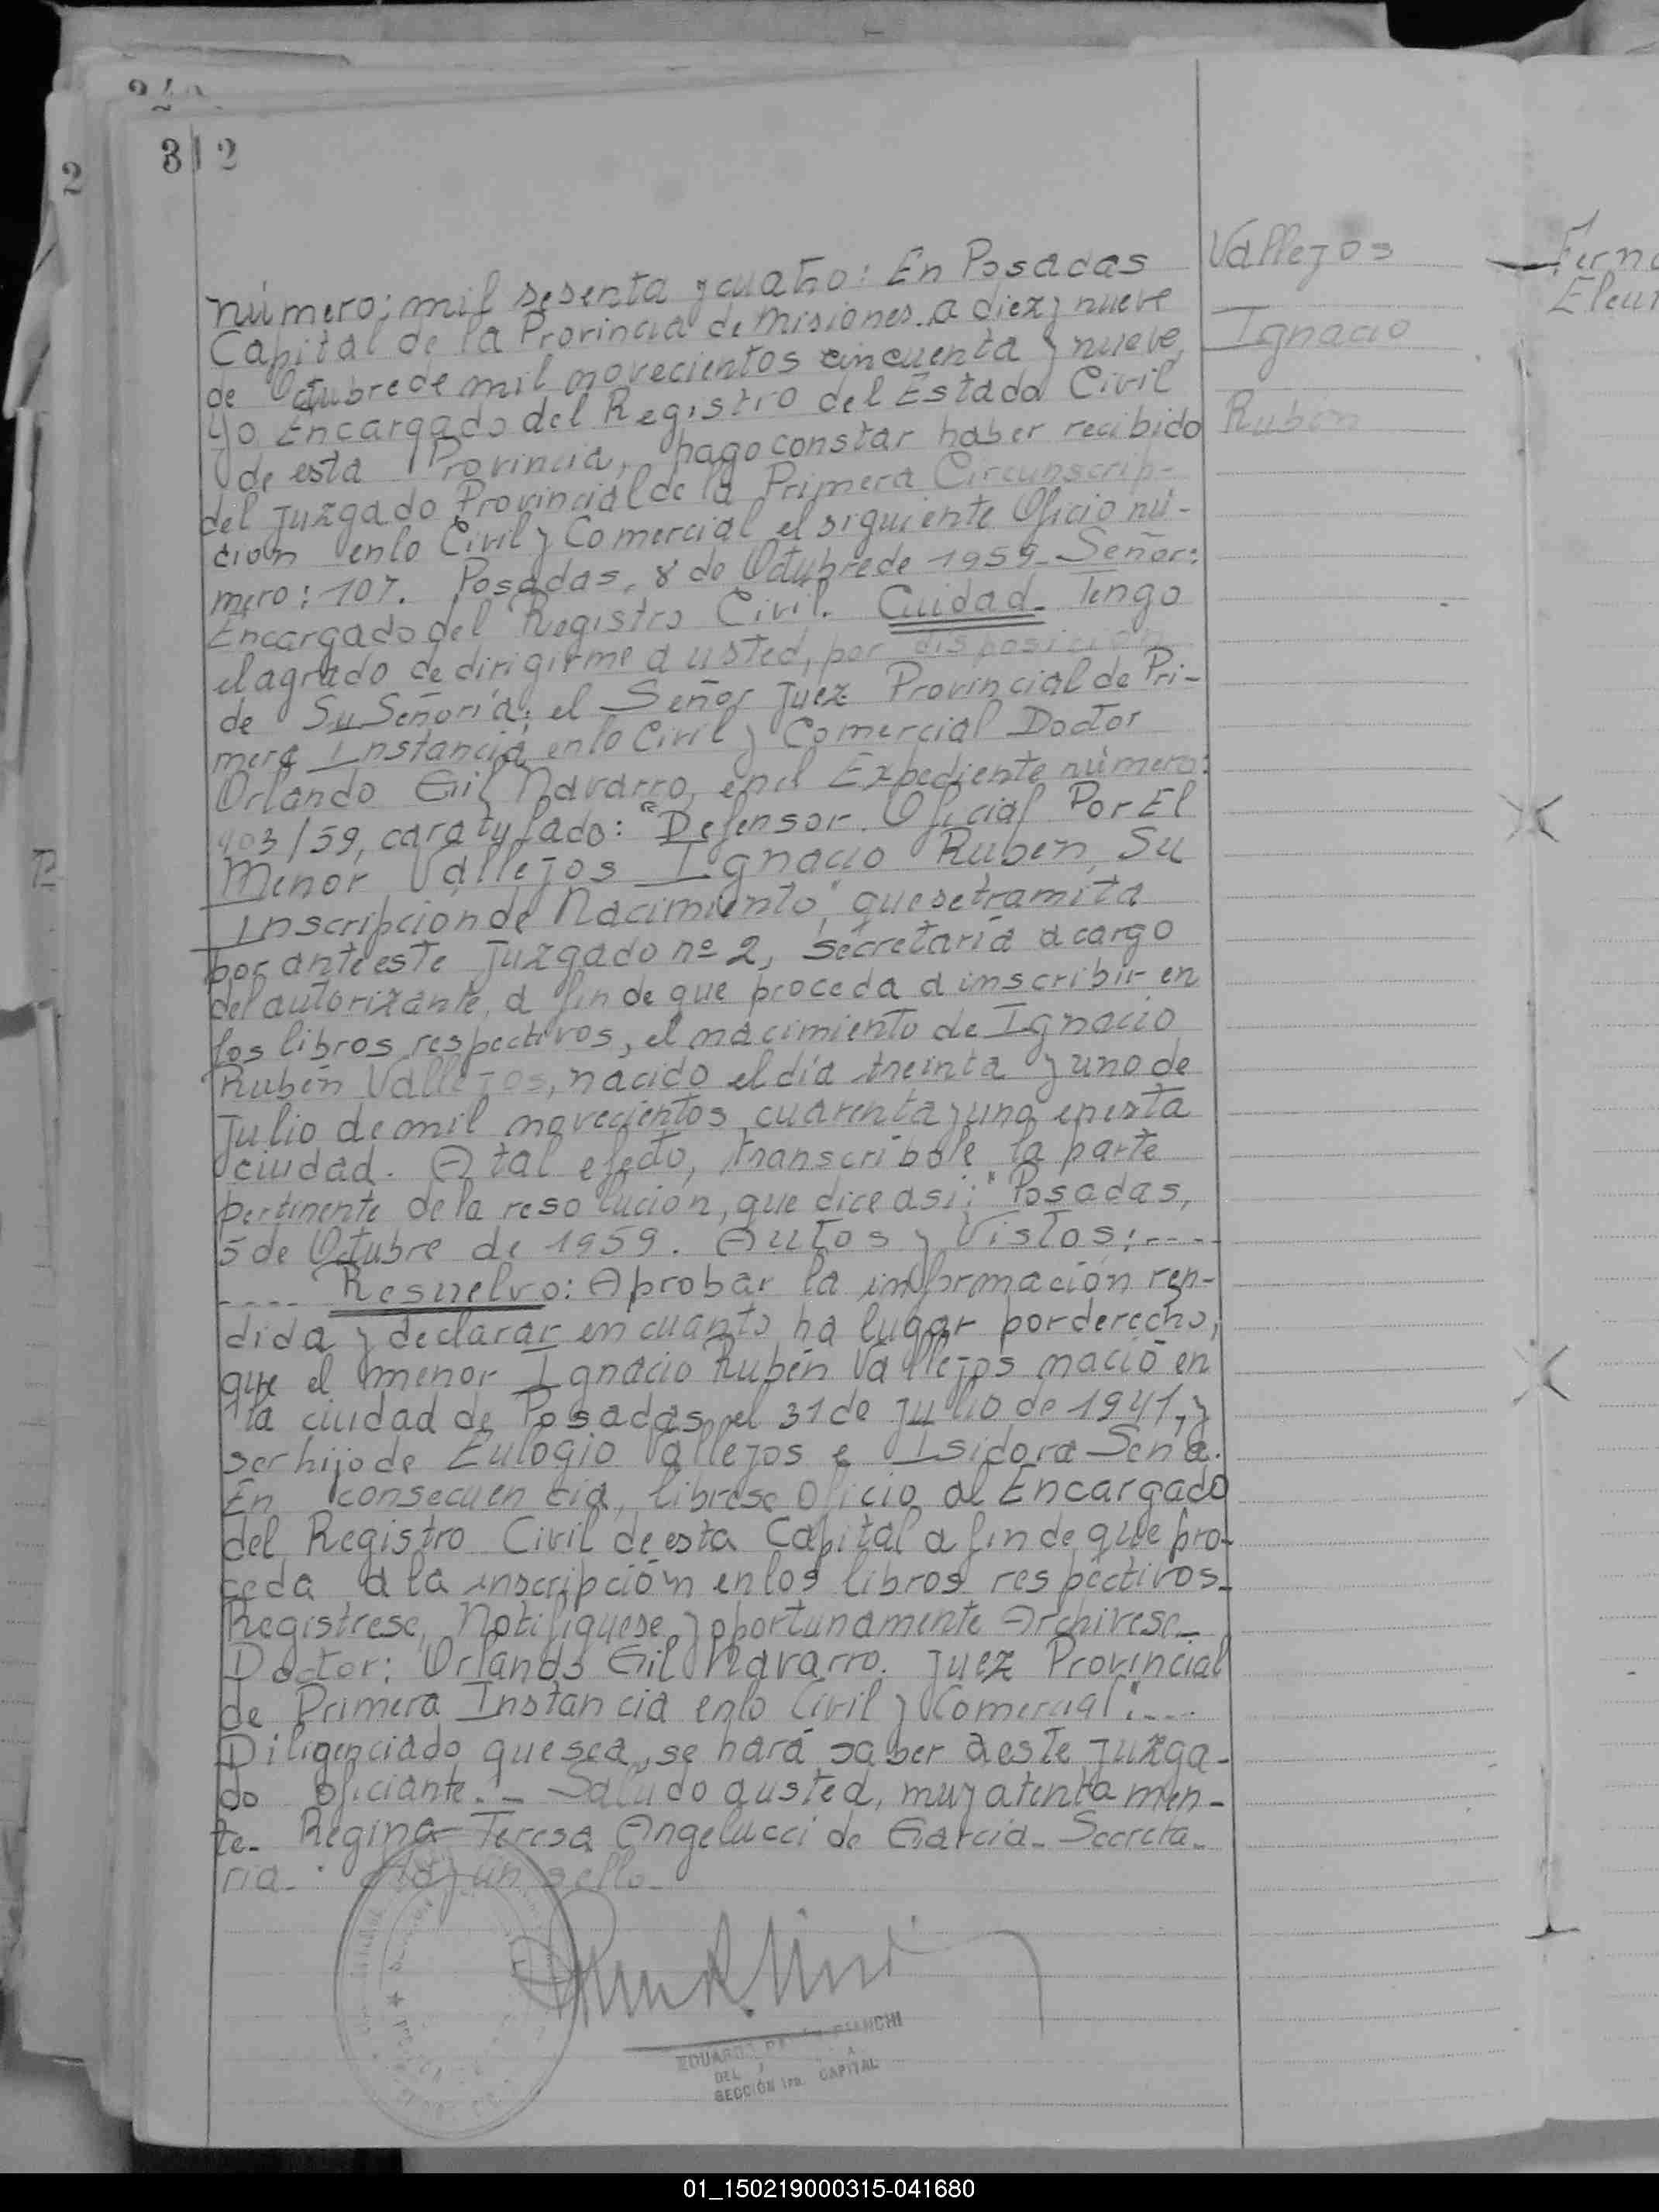 312
2
Vallejos
Ignacio
Rubén
número: mil sesenta y cuatro: En Posadas
Capital de la Provincia de Misiones. a diez y nueve
de Octubre de mil novecientos cincuenta y nueve,
yo Encargado del Registro del Estado Civil
de esta Provincia, hago constar haber recibido
del Juzgado Provincial de la Primera Circunscrip-
ción en lo Civil y Comercial el siguiente Oficio nú-
mero: 107. Posadas, 8 de Octubre de 1959- Señor:
Encargado del Registro Civil. Ciudad- Tengo
el agrado de dirigirme a usted, por disposición
de Su Señoría; el Señor Juez Provincial de Pri-
mera Instancia en lo Civil y Comercial Doctor
Orlando Gil Navarro, en el Expediente número:
403/59, caratulado: "Defensor Oficial Por El
Menor Vallejos Ignacio Ruben, Su
Inscripción de Nacimiento", que se tramita
por ante este Juzgado nº 2, secretaría a cargo
del autorizante, a fin de que proceda a inscribir en
los libros respectivos, el nacimiento de Ignacio
Rubén Vallejos, nacido el día treinta y uno de
Julio de mil novecientos cuarenta y uno en esta
ciudad. A tal efecto, transcríbole la parte
pertinente de la resolución, que dice así: "Posadas,
5 de Octubre de 1959. Autos y Vistos:----
.... Resuelvo: Aprobar la información ren-
dida y declarar en cuanto ha lugar por derecho,
que el menor Ignacio Rubén Vallejos nació en
la ciudad de Posadas, el 31 de Julio de 1941, y
ser hijo de Eulogio Vallejos e Isidora Sena.
En consecuencia, líbrese Oficio al Encargado
del Registro Civil de esta Capital a fin de que pro-
ceda a la inscripción en los libros respectivos-
Regístrese, Notifíquese y oportunamente Archívese-
Doctor: Orlando Gil Navarro. Juez Provincial
de Primera Instancia en lo Civil y Comercial"....
Diligenciado que sea, se hará saber a este Juzga-
do oficiante.- Saludo a usted, muy atentamen-
te- Regina Teresa Angelucci de García- Secreta-
ria- Hay un sello-
EDUARDO BIANCHI
DEL
SECCIÓN 1ra. CAPITAL
01_150219000315-041680